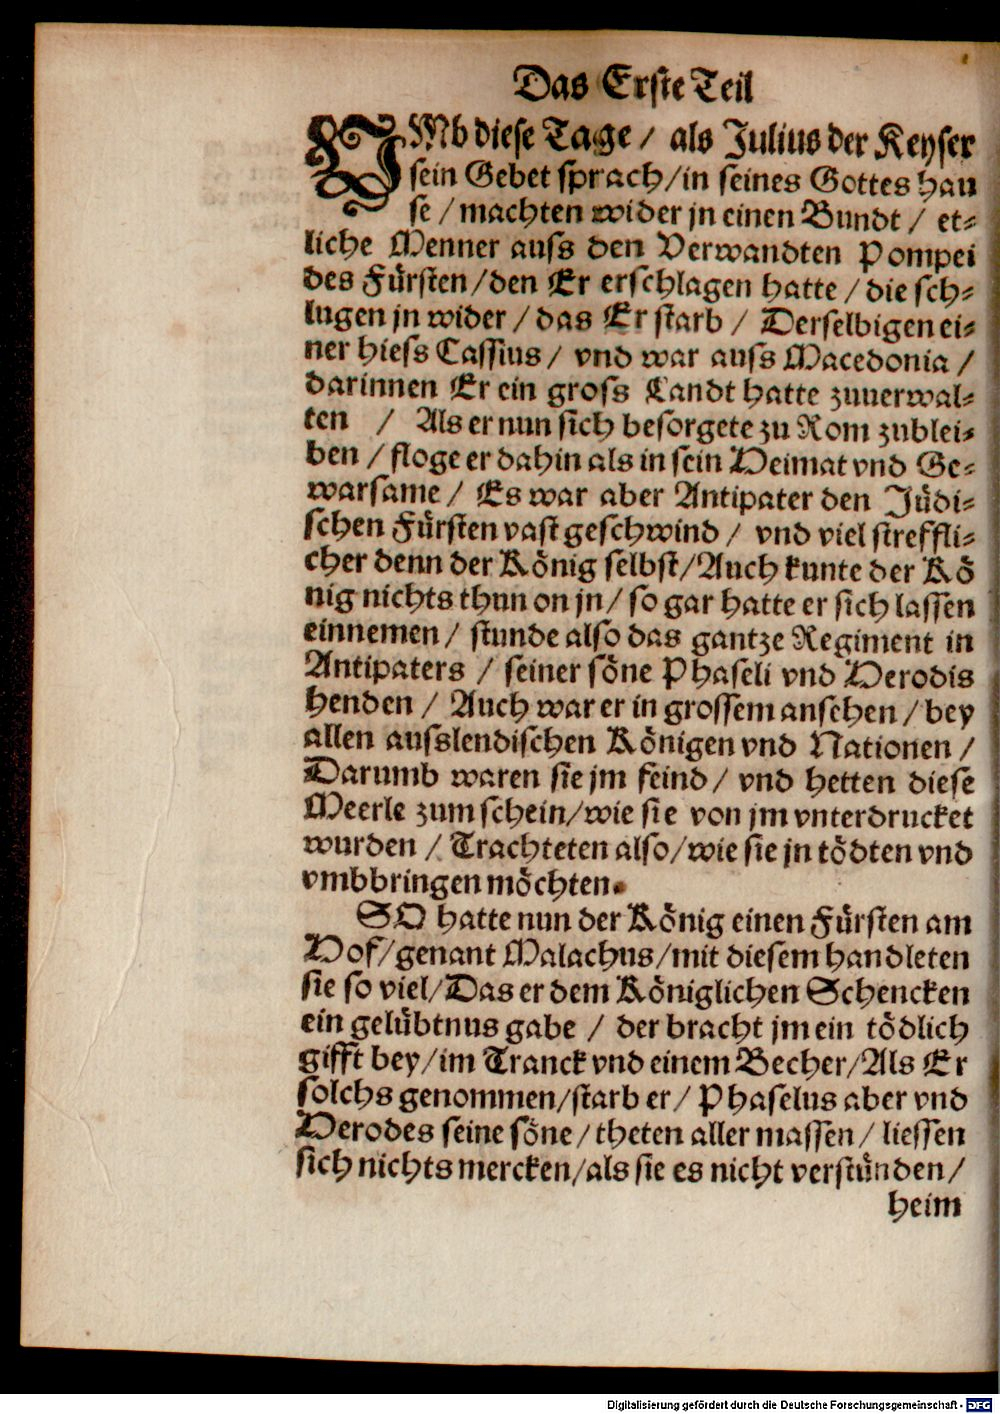 Das Erste Teil
VMb diese Tage / als Julius der Keyser
sein Gebet sprach/in seines Gottes hau
se / machten wider jn einen Bundt / et⸗
liche Menner auss den Verwandten Pompei
des Fürsten/den Er erschlagen hatte / die sch⸗
lugen jn wider / das Er starb / Derselbigen ei⸗
ner hiess Cassius / vnd war auss Macedonia /
darinnen Er ein gross Landt hatte zuuerwal⸗
ten / Als er nun sich besorgete zu Rom zublei⸗
ben / floge er dahin als in sein Heimat vnd Ge⸗
warsame / Es war aber Antipater den Jüdi⸗
schen Fürsten vast geschwind / vnd viel streffli⸗
cher denn der König selbst/Auch kunte der Kö
nig nichts thun on jn / so gar hatte er sich lassen
einnemen / stunde also das gantze Regiment in
Antipaters / seiner söne Phaseli vnd Herodis
henden / Auch war er in grossem ansehen / bey
allen ausslendischen Königen vnd Nationen /
Darumb waren sie jm feind / vnd hetten diese
Meerle zum schein/wie sie von jm vnterdrucket
wurden / Trachteten also/wie sie jn tödten vnd
vmbbringen möchten.
SO hatte nun der König einen Fürsten am
Hof/genant Malachus/mit diesem handleten
sie so viel/Das er dem Königlichen Schencken
ein gelübtnus gabe / der bracht jm ein tödlich
gifft bey/im Tranck vnd einem Becher/Als Er
solchs genommen/starb er / Phaselus aber vnd
Herodes seine söne / theten aller massen / liessen
sich nichts mercken/als sie es nicht verstünden /
heim
Digitalisierung gefördert durch die Deutsche Forschungsgemeinschaft - DFG